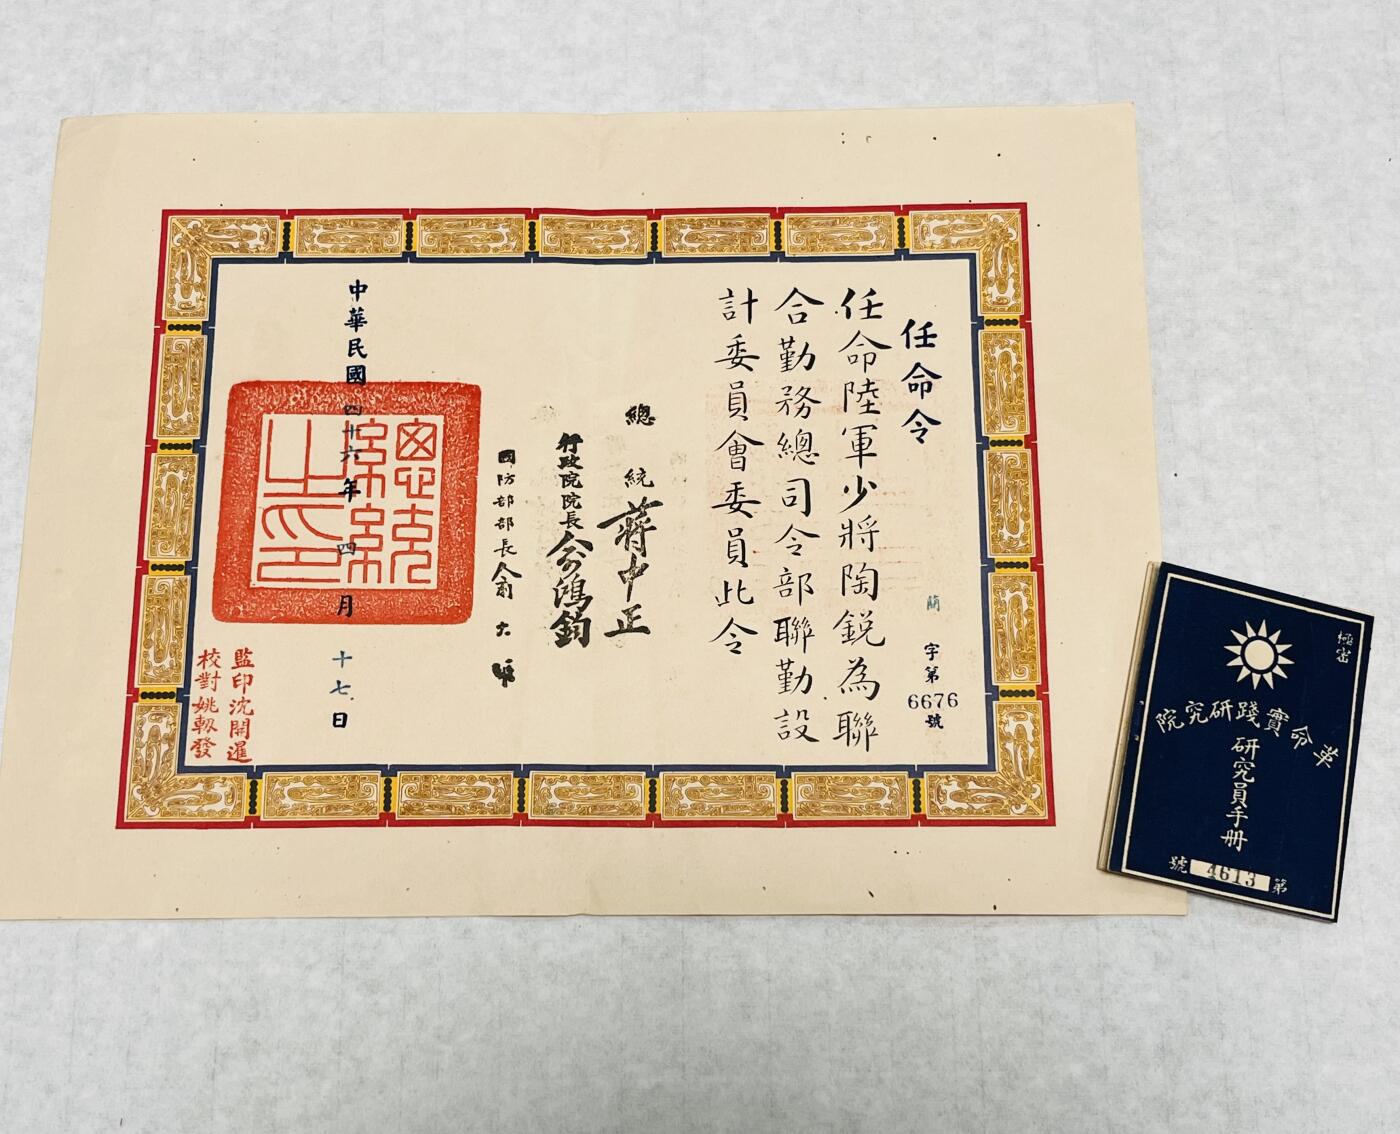 任命令
任命陸軍少將陶銳為聯
合勤務總司令部聯勤設
計委員會委員此令
字第
6676
號
總統 蔣中正
行政院院長 俞鴻鈞
國防部部長 俞大維
中華民國四十六年四月十七日
總統之印
監印沈開暹
校對姚軔發
極密
革命實踐研究院
研究員手冊
第4613號